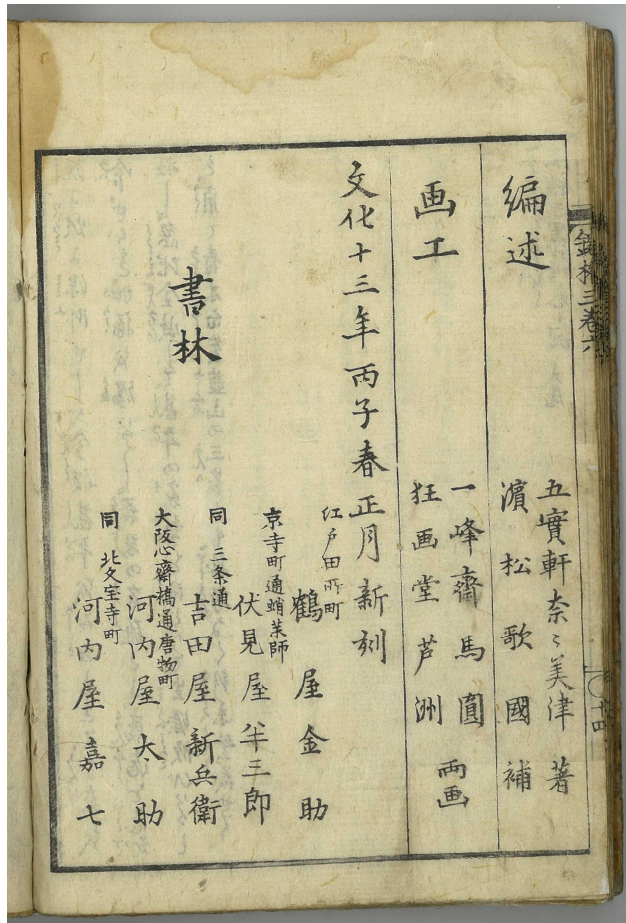 三巻六
十四
編述
五實軒奈〻美津 著
濱松歌國補
画工
一峰齋馬圓
狂画堂芦洲
両画
文化十三年丙子春正月新刻
書林
江戸田所町
鶴屋金助
京寺町通蛸薬師
伏見屋半三郎
同 三条通
吉田屋新兵衛
大阪心齋橋通唐物町
河内屋太助
同 北久宝寺町
河内屋嘉七